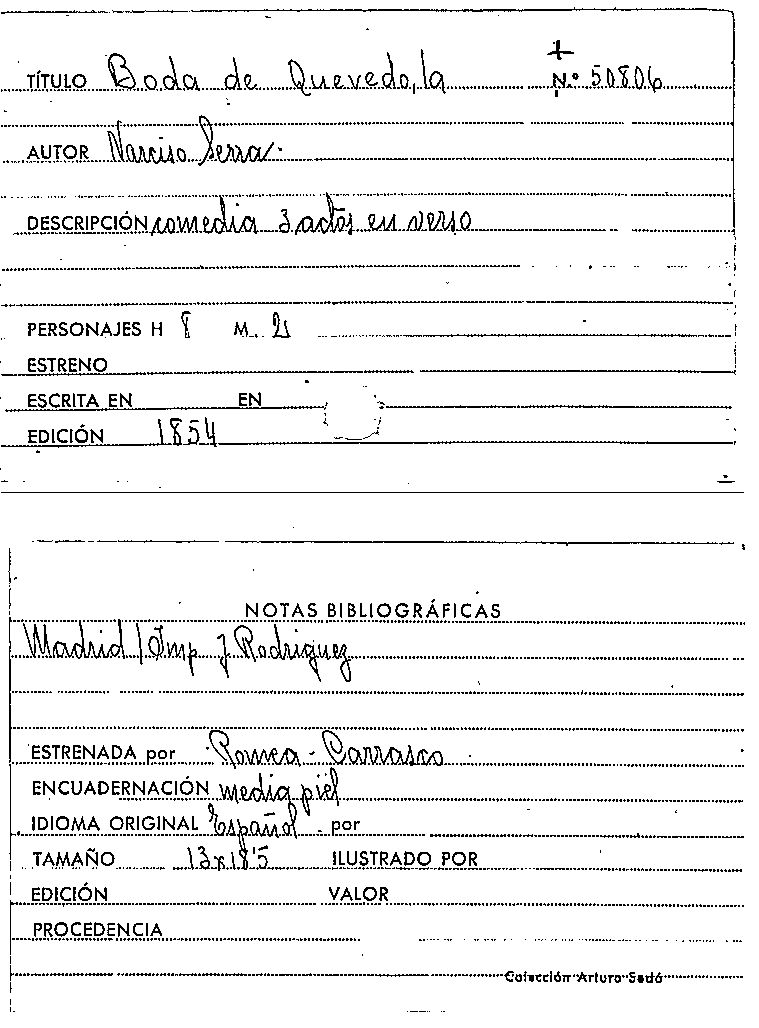 +
TÍTULO Boda de Quevedo, la N.º 50806
AUTOR Narciso Serra.
DESCRIPCIÓN comedia 3 actos en verso
PERSONAJES H 8 M. 2
ESTRENO
ESCRITA EN EN
EDICIÓN 1854
NOTAS BIBLIOGRÁFICAS
Madrid / Imp J Rodriguez
ESTRENADA por Romea - Carrasco
ENCUADERNACIÓN media piel
IDIOMA ORIGINAL Español por
TAMAÑO 13x18'5 ILUSTRADO POR
EDICIÓN VALOR
PROCEDENCIA
Colección Arturo Sedó